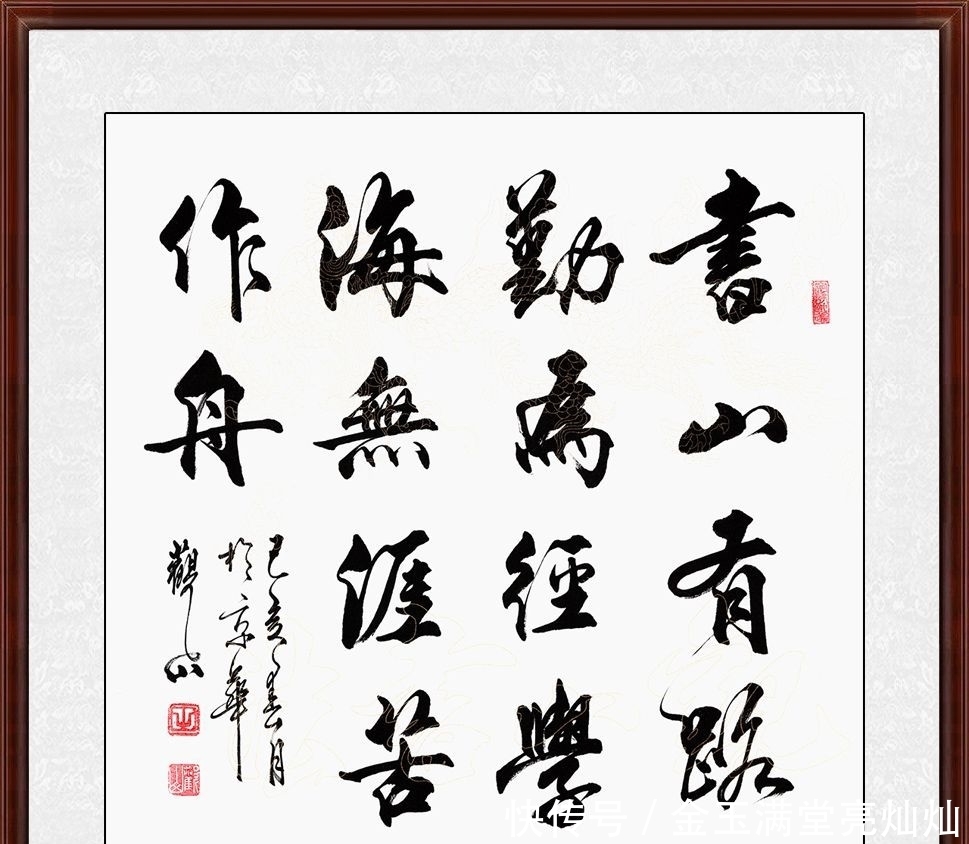 書山有路
勤為徑學
海無涯苦
作舟
己亥春月
於京華
觀山
快传号 / 金玉满堂亮灿灿